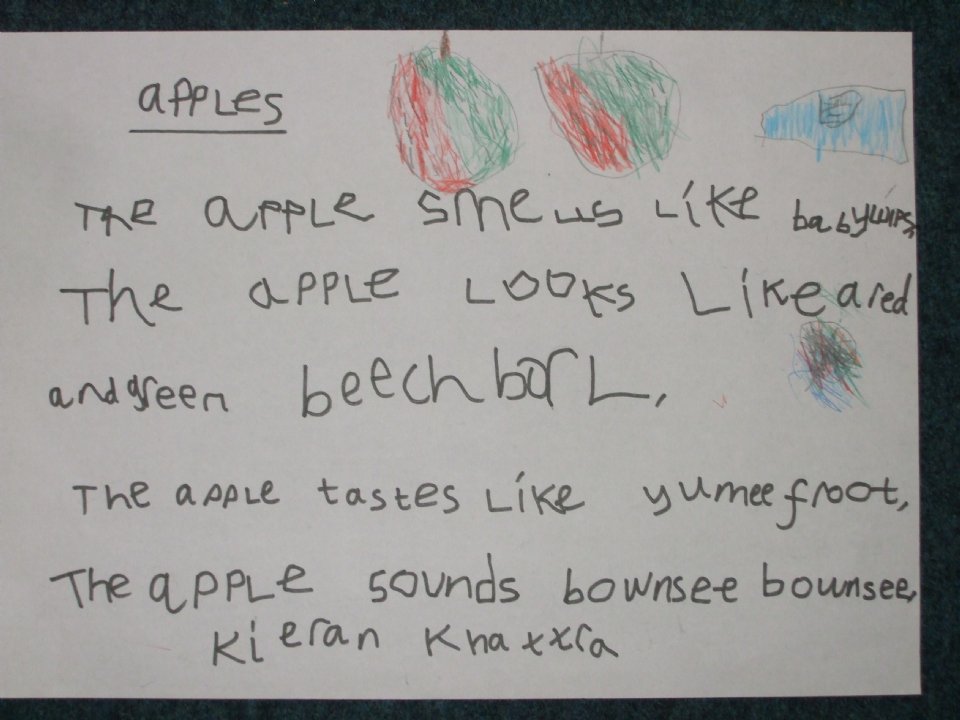 apples
The apple smells like babywips,
The apple Looks Like a red
and green beech barL,
The apple tastes Like yumee froot,
The apple sounds bownsee bounsee,
Kieran